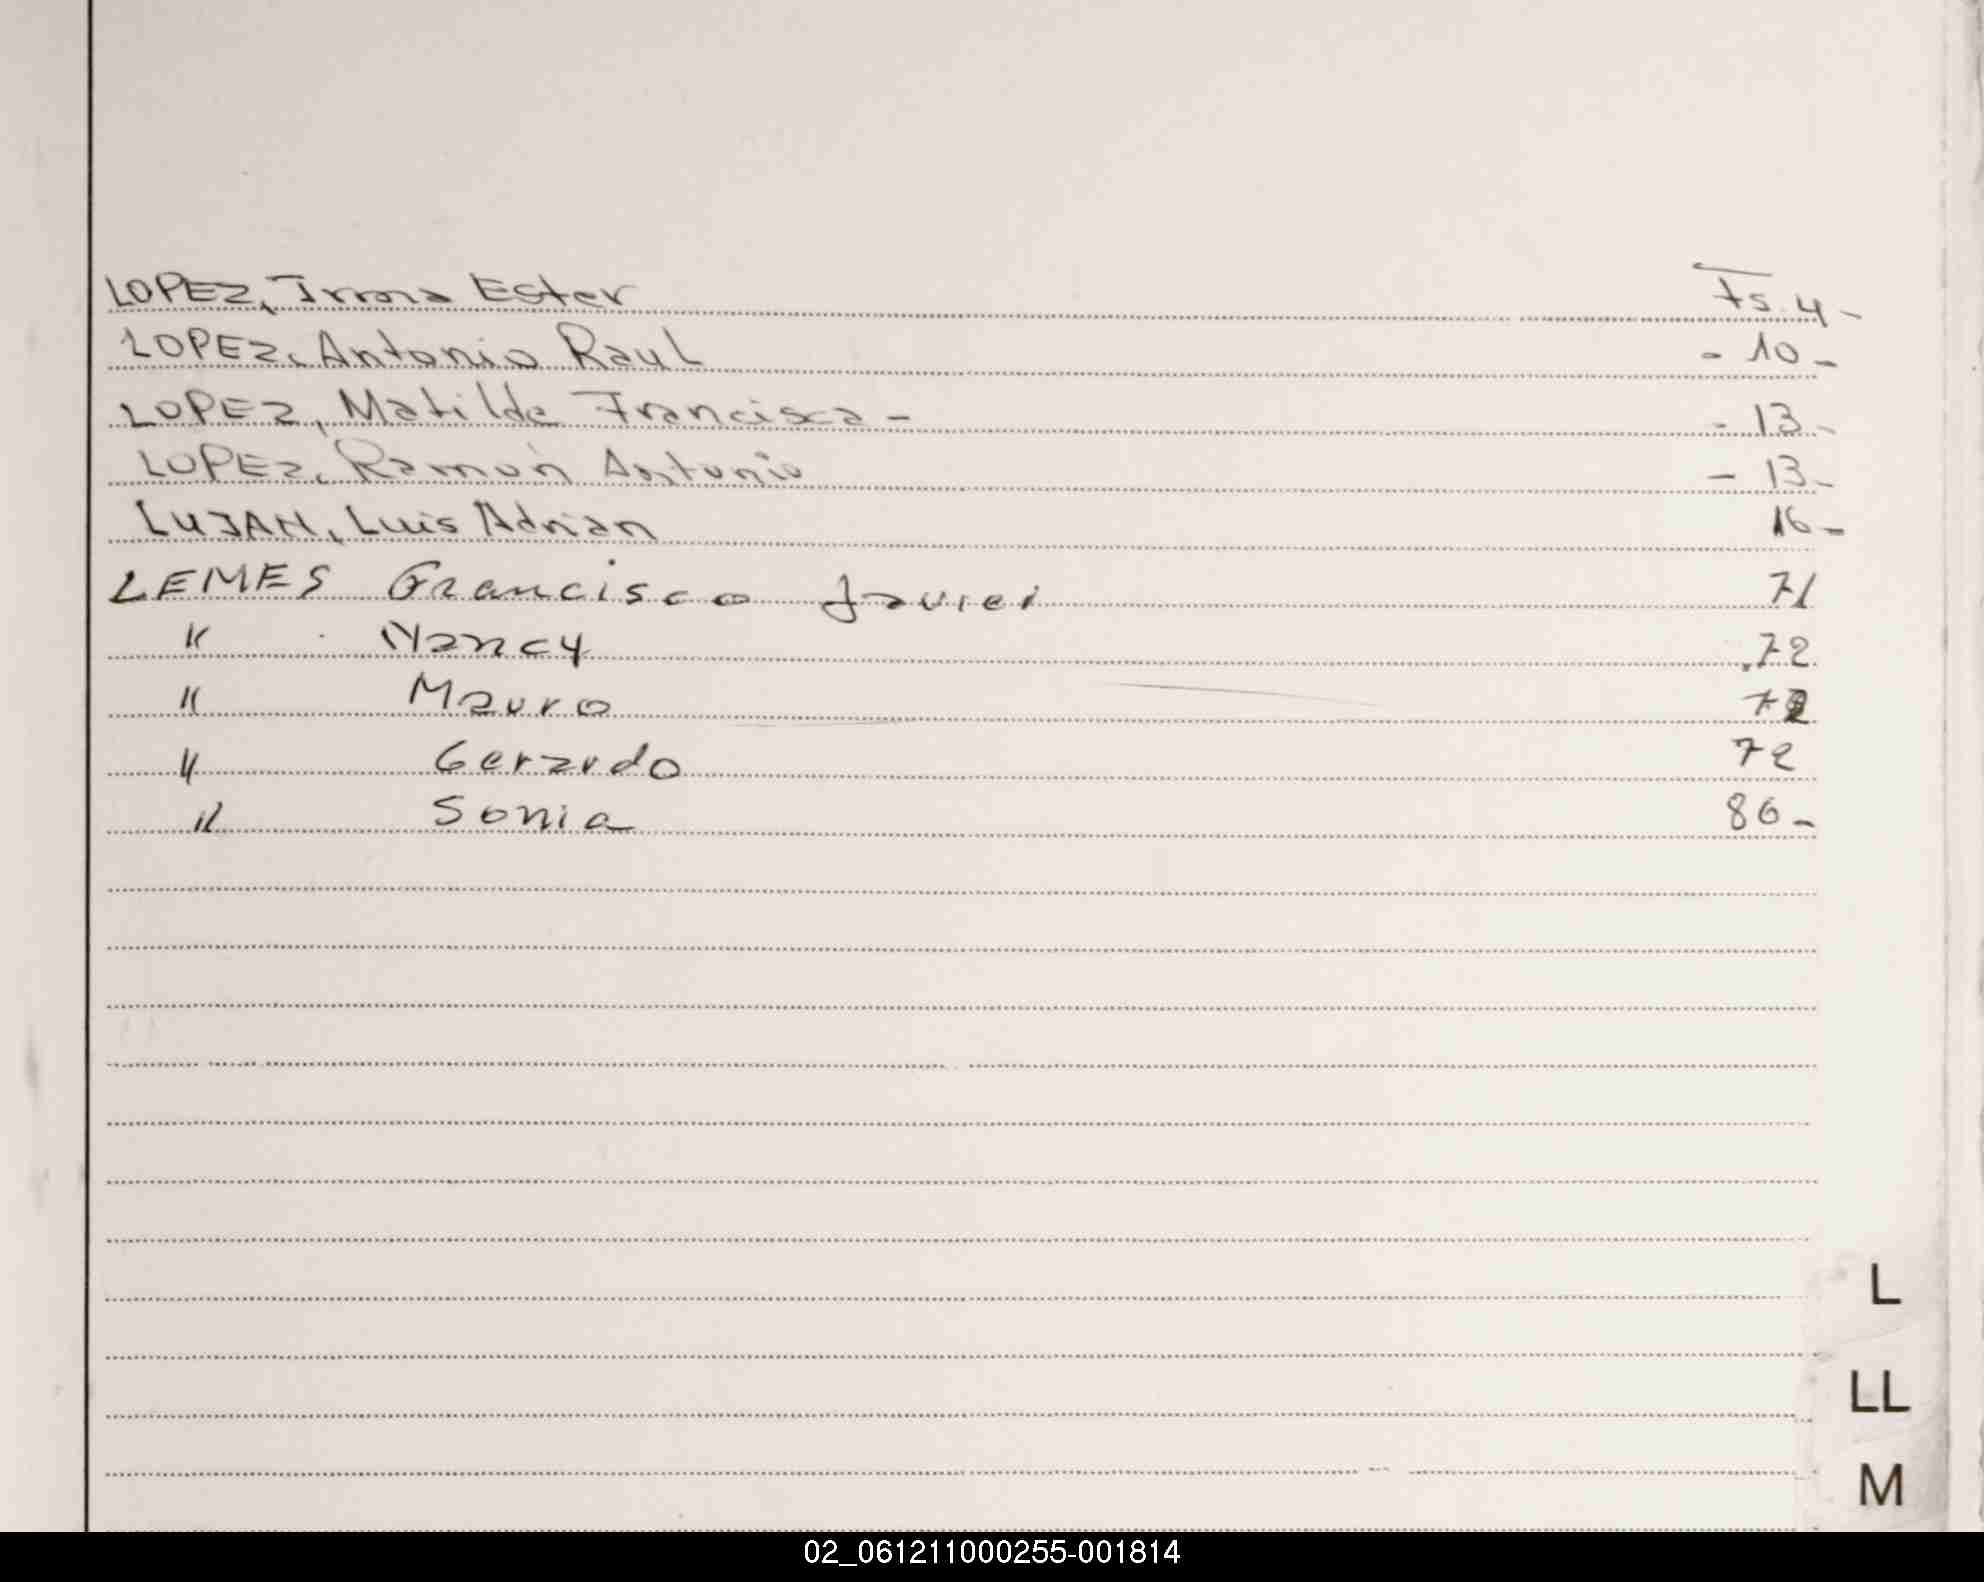 LOPEZ, Irma Ester Fs. 4-
LOPEZ, Antonio Raul - 10-
LOPEZ, Matilde Francisca - - 13-
LOPEZ, Ramón Antonio - 13-
LUJAN, Luis Adrian 16-
LEMES Francisco Javier 71
" Nancy 72
" Mauro 72
" Gerardo 72
" Sonia 86-
L
LL
M
02_061211000255-001814